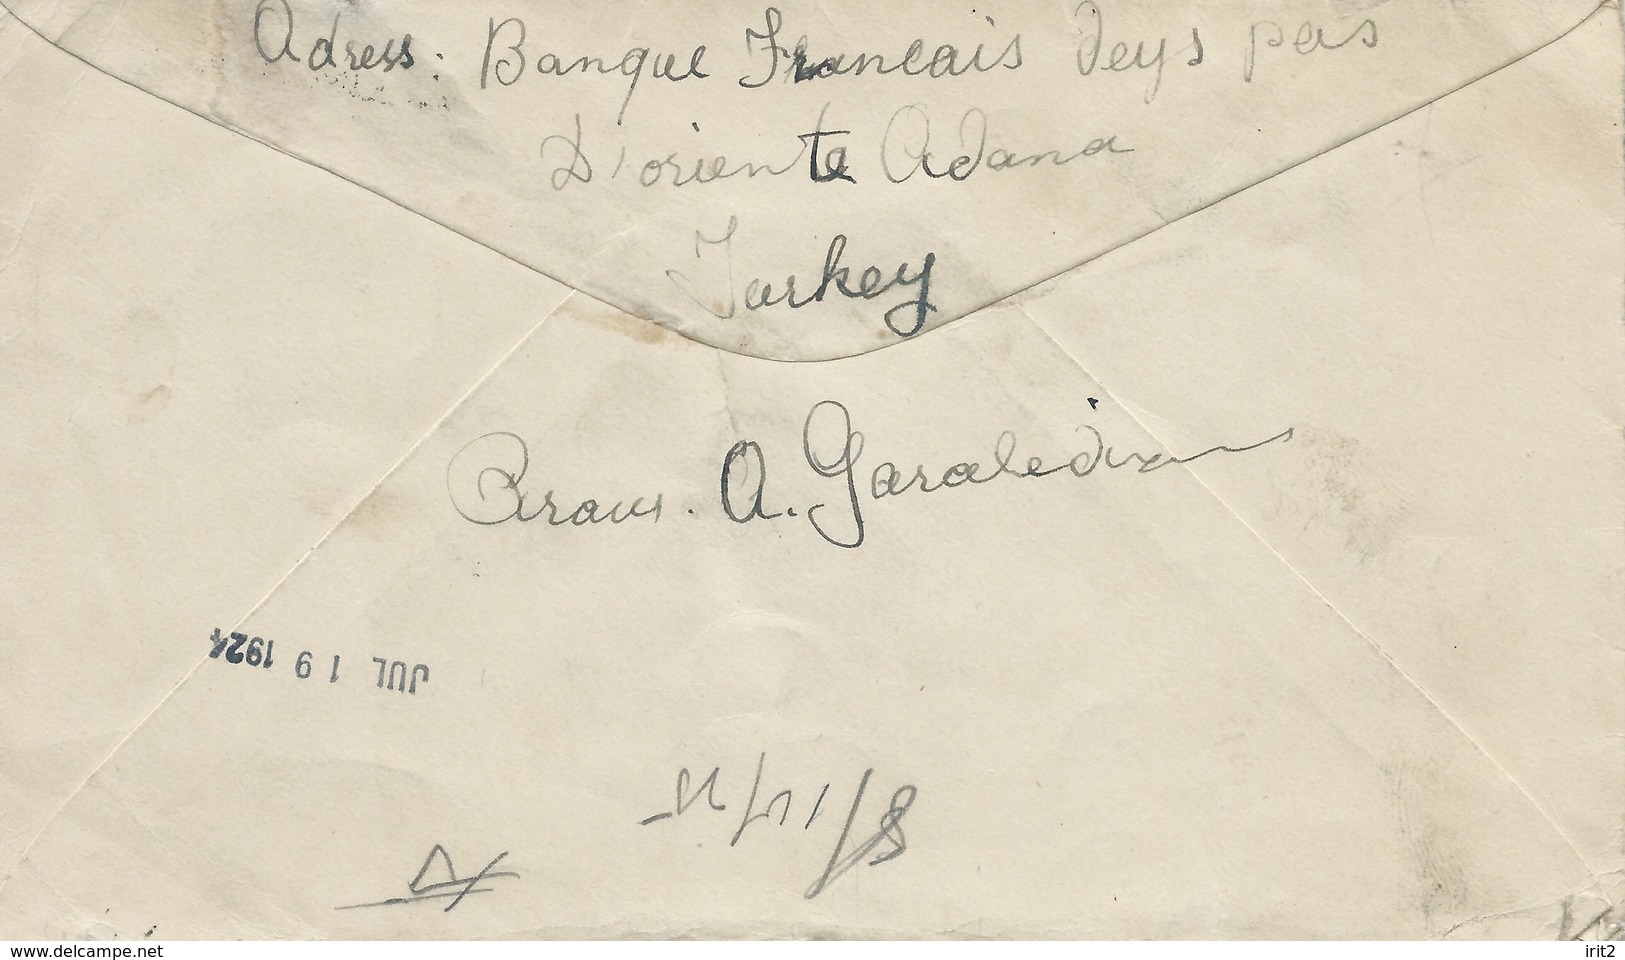 Adress: Banque Francais deys pas
D'oriente Adana
Turkey
A. Garabedian
JUL 19 1924
www.delcampe.net
irit2